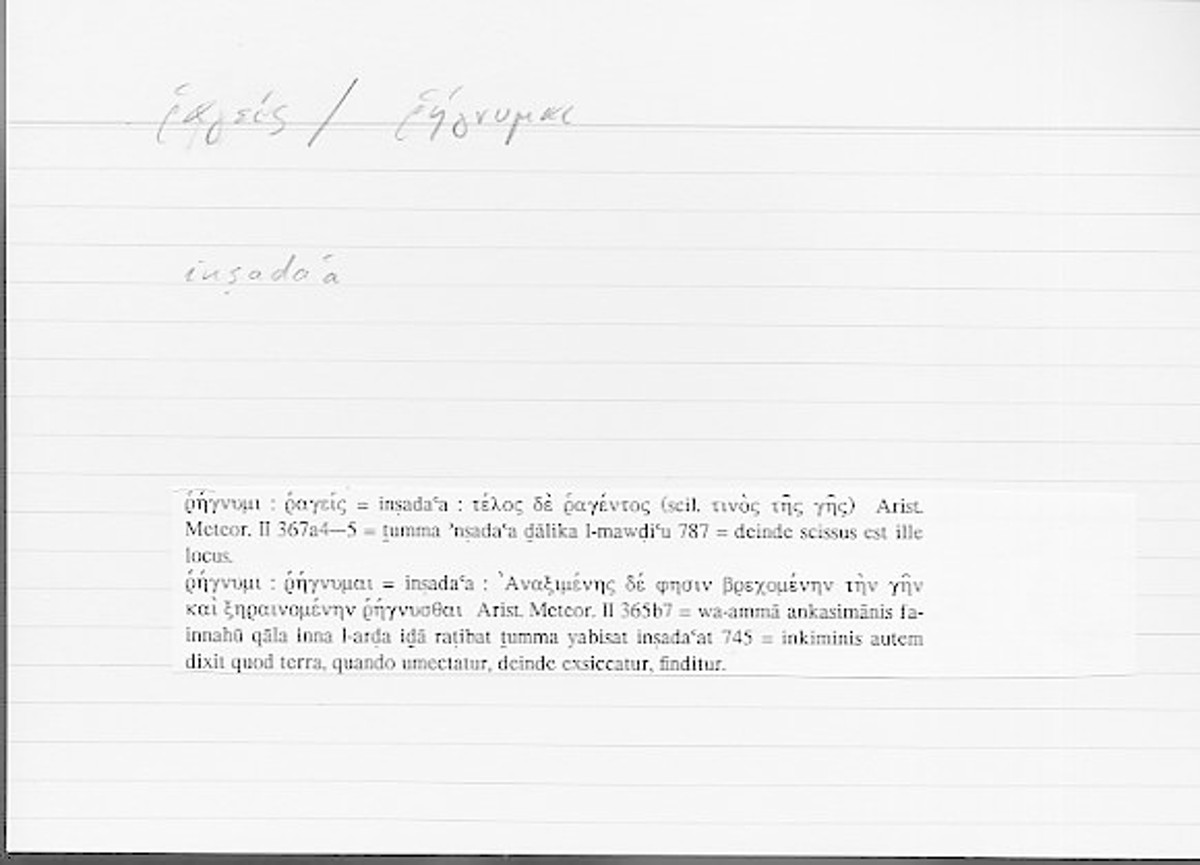 ῥαγείς / ῥήγνυμαι
inṣadaʿa
ῥήγνυμι : ῥαγείς = inṣadaʿa : τέλος δὲ ῥαγέντος (scil. τινὸς τῆς γῆς) Arist.
Meteor. II 367a4—5 = ṯumma ʾnṣadaʿa ḏālika l-mawḍiʿu 787 = deinde scissus est ille
locus.
ῥήγνυμι : ῥήγνυμαι = inṣadaʿa : Ἀναξιμένης δέ φησιν βρεχομένην τὴν γῆν
καὶ ξηραινομένην ῥήγνυσθαι Arist. Meteor. II 365b7 = wa-ammā ankasimānis fa-
innahū qāla inna l-arḍa iḏā raṭibat ṯumma yabisat inṣadaʿat 745 = inkiminis autem
dixit quod terra, quando umectatur, deinde exsiccatur, finditur.